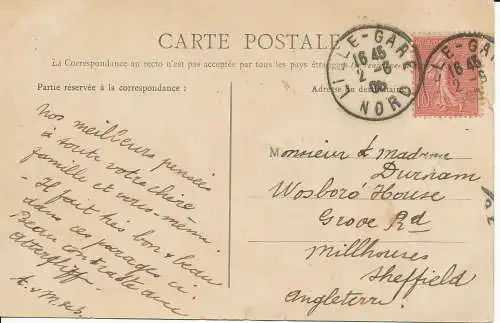 CARTE POSTALE
La Correspondance au recto n'est pas acceptée par tous les pays étrangers
Partie réservée à la correspondance :
Adresse du destinataire
LILLE-GARE
16 45
2-6
NORD
LLE-GAR
16 45
2-6
10
Nos meilleurs pensées
à toute votre chère
famille et vous-même.
Il fait très bon & beau
dans ces parages ci.
Beau
Monsieur & Madame
Durham
Wosboro' House
Grove Rd
Millhouses
Sheffield
Angleterre